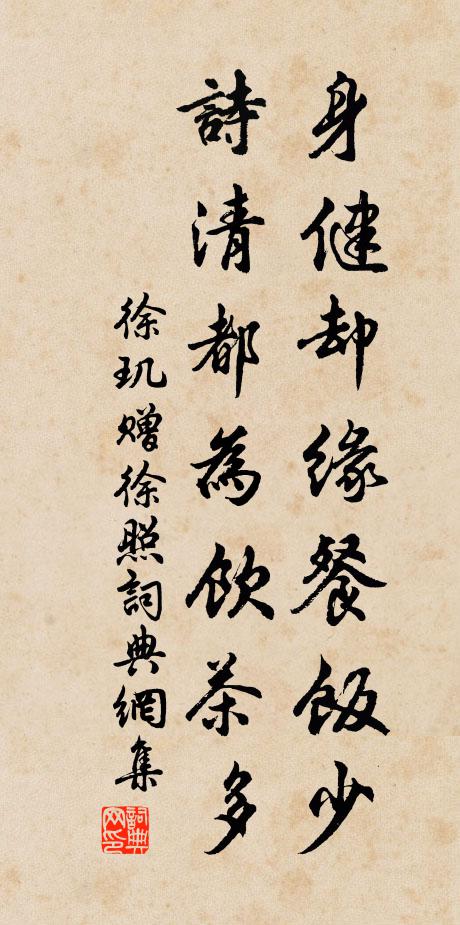 身健却緣餐飯少
詩清都為飲茶多
徐玑赠徐照詞典網集
詞典网印